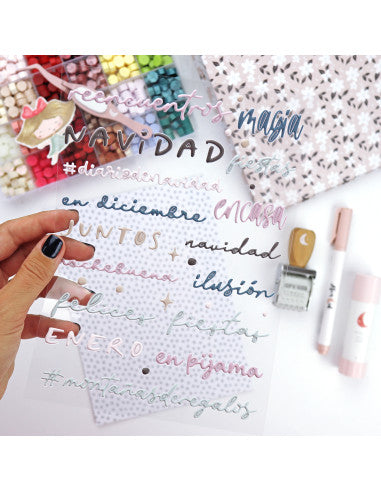 reencuentros magia
NAVIDAD fiestas
en diciembre en casa
JUNTOS navidad
nochebuena ilusión
felices fiestas
ENERO en pijama
#montañasderegalos